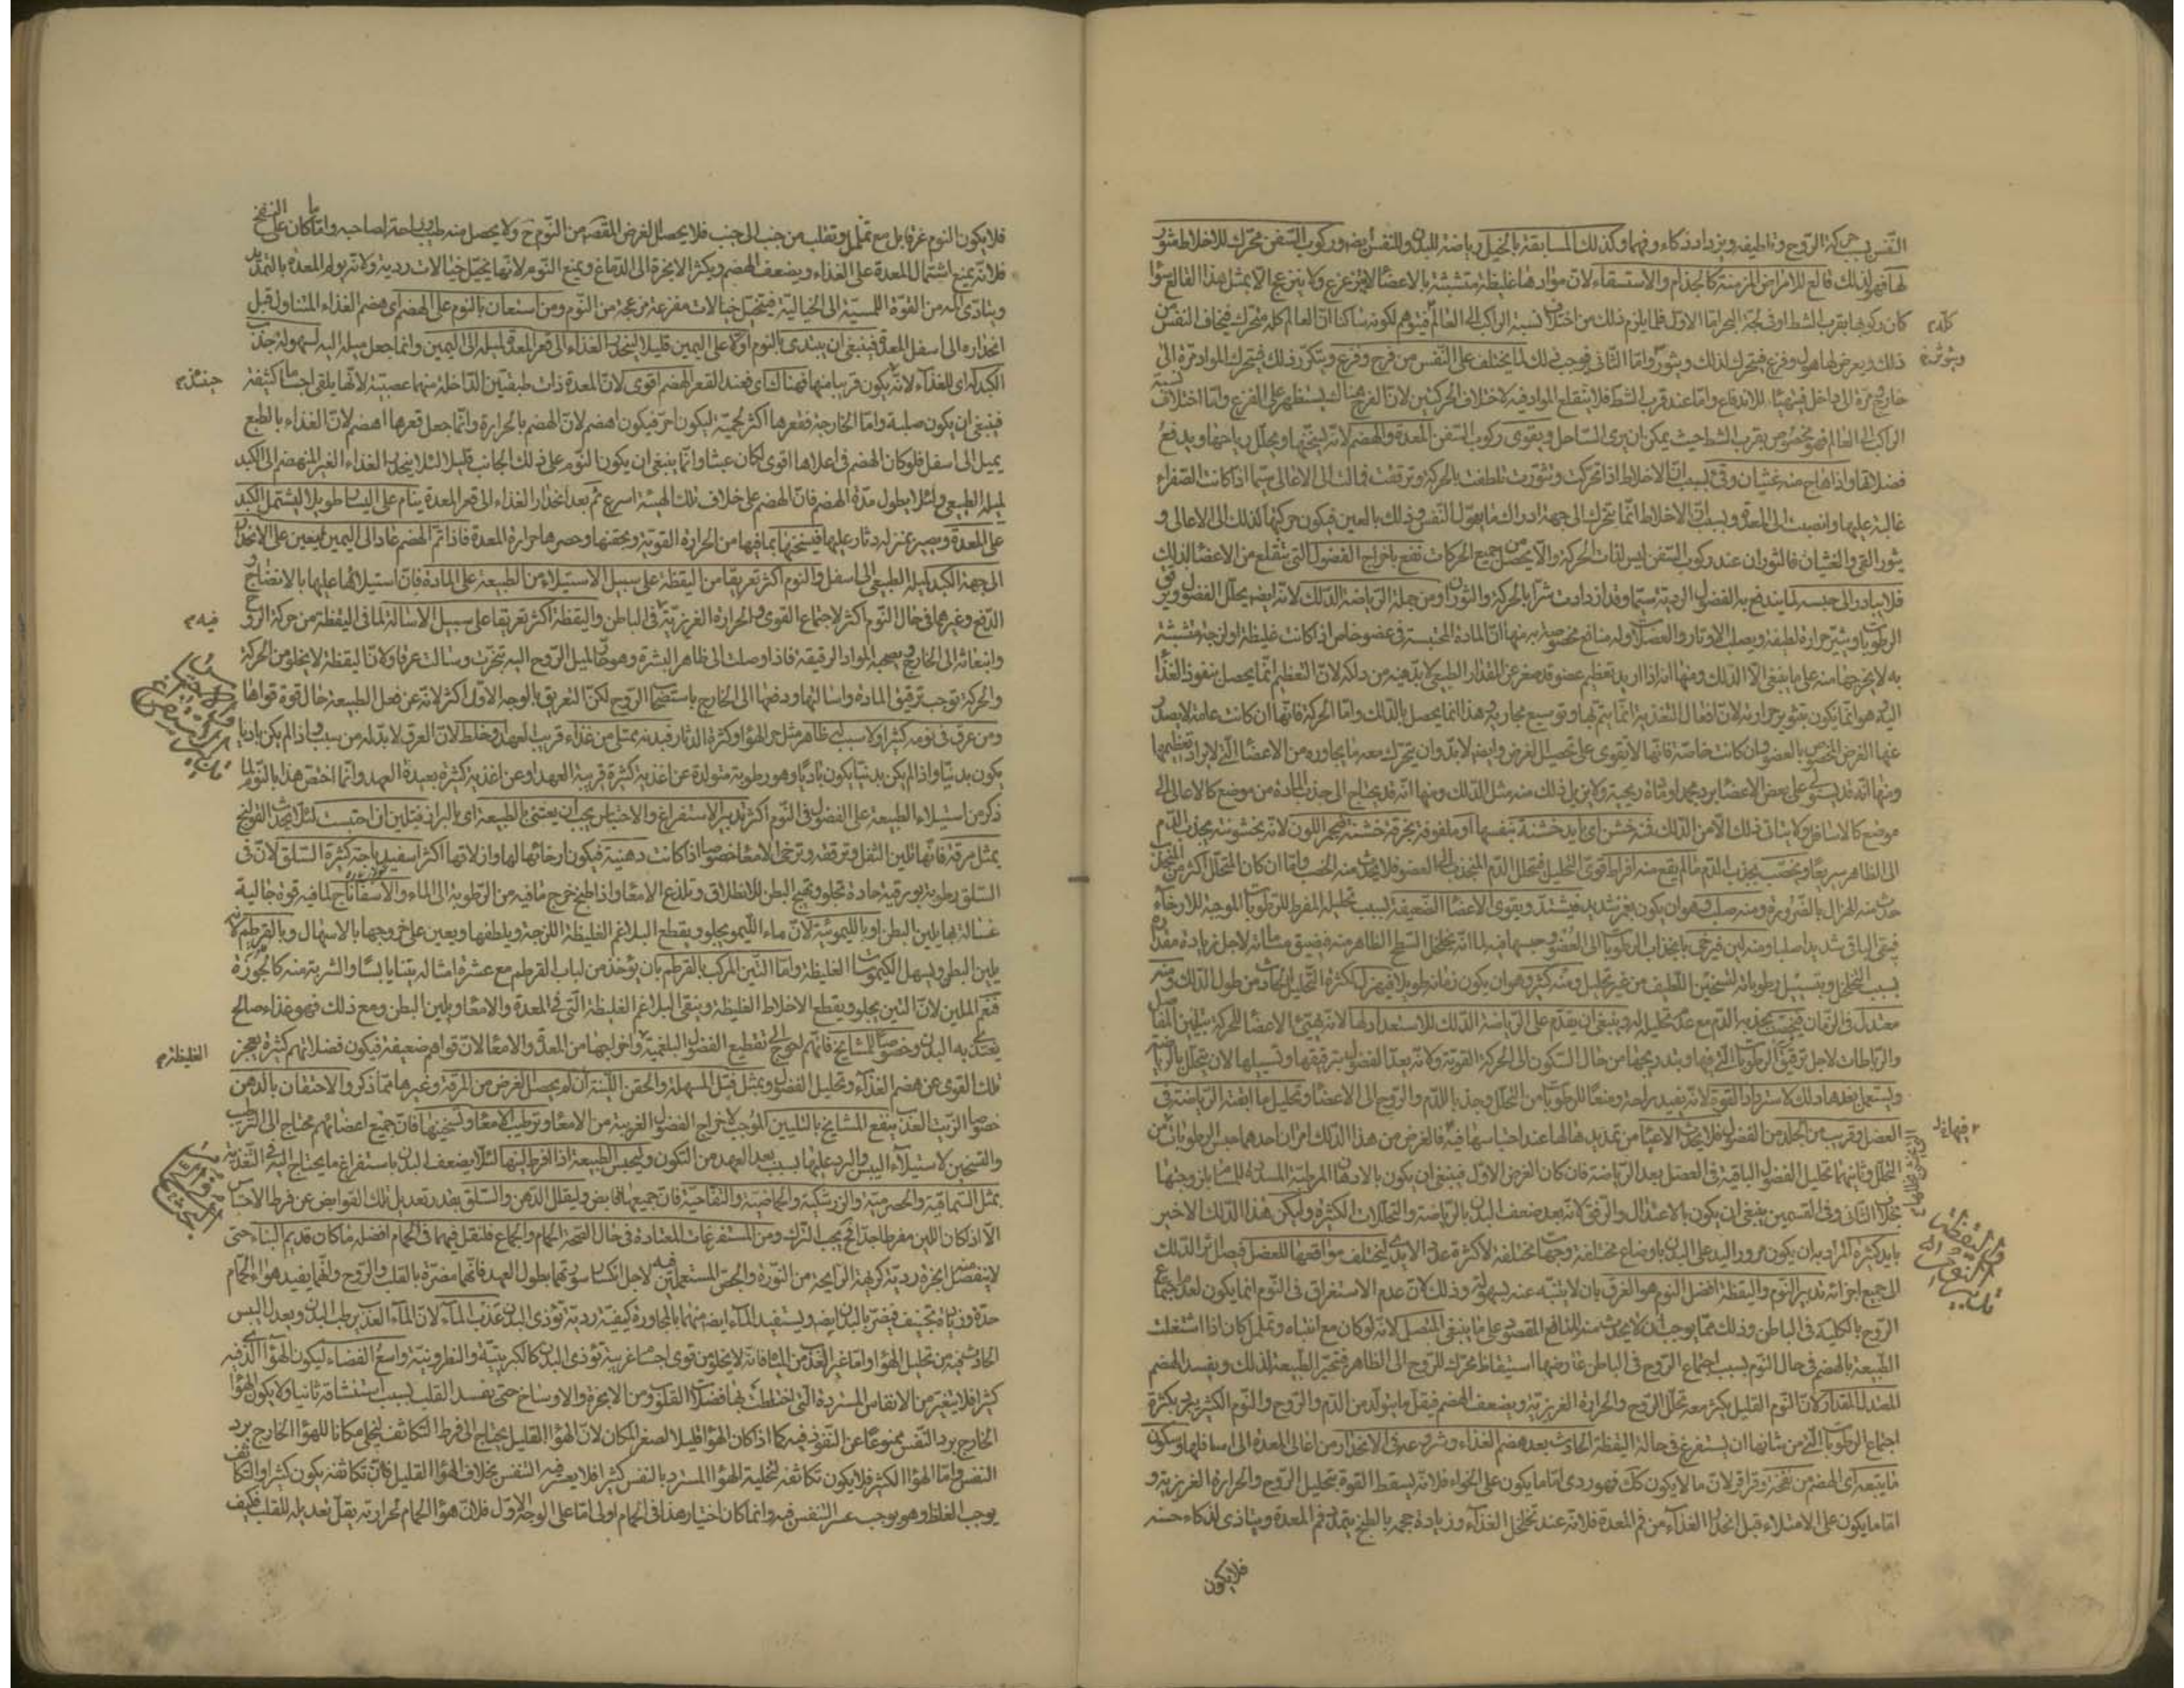 النفس بسبب حركة الروح وتلطيفه ويزداد ذكاء وفهما وكذلك المسابقة بالخيل رياضة للبدن وللنفس ايضا وركوب السفن محرك للاخلاط مثور
لها فهو لذلك قالع للامراض المزمنة كالجذام والاستسقاء لان موادها غليظة متشبثة بالاعضاء لا يتزعزع ولا ينزعج الا بمثل هذا القالع سواء
كان ركوبها بقرب الشط او في لجة البحر اما الاول فلما يلزم ذلك من اختلاف نسبة الراكب الى العالم فيتوهم لكونه ساكنا ان العالم كله متحرك فيخاف النفس من
ذلك ويعرض لها هول وفزع فيتحرك لذلك ويثور واما الثاني فيوجب ذلك لما يختلف على النفس من فرح وفزع ويتكرر ذلك فيتحرك المواد مرة الى
خارج ومرة الى داخل فيتهيأ للاندفاع واما عند قرب الشط فلا ينقلع المواد فيه لاختلاف الحركتين لان الفرح هناك يستظهر على الفزع واما اختلاف نسبة
الراكب الى العالم فهو مخصوص بقرب الشط حيث يمكن ان يرى الساحل ويقوى ركوب السفن المعدة والهضم لانه يسخنها ويحلل رياحها ويدفع
فضلاتها واذا هاج منه غثيان وقيء بسبب ان الاخلاط اذا تحركت وتثورت تلطفت بالحركة وترققت فمالت الى الاعالى سيما اذا كانت الصفراء
غالبة عليها وانصبت الى المعدة وبسبب ان الاخلاط انما تتحرك الى جهة ادراك ما يهول النفس وذلك بالعين فيكون حركتها لذلك الى الاعالى و
يثور القيء والغثيان فالثوران عند ركوب السفن ليس لذات الحركة والا يحصل من جميع الحركات نفع باخراج الفضول التي تنقلع من الاعضاء لذلك
فلا يبادر الى حبسه لما يندفع به الفضول الردية سيما وقد ازدادت شرا بالحركة والثوران ومن جملة الرياضة الدلك لانه ايضا يحلل الفضول ويرقق
الرطوبات ويثير حرارة لطيفة ويصلب الاوتار والعضل وله منافع مخصوصة به منها ان المادة المحتبسة في عضو خاص اذا كانت غليظة او لزجة متشبثة
به لا يخرجها منه على ما ينبغى الا الدلك ومنها انه اذا اريد تعظيم عضو قد صغر عن المقدار الطبيعى لا بد فيه من دلكه لان التعظيم انما يحصل بنفوذ الغذاء
اليه وهو انما يكون بتثوير حرارته لان افعال التغذية انما يتم بها وتوسيع مجاريه وهذا انما يحصل بالدلك واما الحركة فانها ان كانت عامة لا يصدر
عنها الغرض المخصوص بالعضو وان كانت خاصة فانها لا تقوى على تحصيل الغرض وايضا لا بد وان يتحرك معه ما يجاوره من الاعضاء التي لا يراد تعظيمها
ومنها انه قد يستولى على بعض الاعضاء برد مجمد او مادة ريحية ولا يزيل ذلك منه مثل الدلك ومنها انه قد يحتاج الى جذب المادة من موضع كالاعالى الى
موضع كالاسافل ولا يتاتى ذلك الا من الدلك فمنه خشن اى بايد خشنة بنفسها او ملفوفة بخرقة خشنة فيحمر اللون لانه بخشونته يجذب الدم
الى الظاهر سريعا ويخصب بجذب الدم ما لم يقع منه افراط قوى التحليل فيتحلل الدم المنجذب الى العضو فلا يحدث منه الخصب واما ان كان المتحلل اكثر من المنجذب
حدث منه الهزال بالضرورة ومنه صلب وهو ان يكون بغمز شديد فيشتد ويقوى الاعضاء الضعيفة بسبب تحليله المفرط للرطوبات الموجبة للارخاء
فيبقى الباقى شديدا صلبا ومنه لين فيرخى بانجذاب الرطوبات الى العضو وحبسها فيه لما انه يتخلخل السطح الظاهر منه فيضيق مسامه لاجل زيادة مقداره
بسبب التخلخل ويتسيل رطوباته لتسخين اللطيف من غير تحليل ومنه كثير وهو ان يكون زمانه طويلا فيهزل لكثرة التحليل الحادث من طول الدلك ومنه
معتدل في الزمان فيخصب بجذبه الدم مع عدم تحليله له وينبغى ان يقدم على الرياضة الدلك للاستعداد لها لانه تهيىء الاعضاء للحركة بتليين المفاصل
والرباطات لاجل ترقيق الرطوبات التي فيها وبتدريجها من حال السكون الى الحركة القوية ولانه يعد الفضول بترقيقها وتسييلها لان تتحلل بالرياضة
ويستعمل بعدها دلك لاسترداد القوة لانه يفيد راحة ومنعا للرطوبات من التحلل وجذبا للدم والروح الى الاعضاء وتحليل ما ابقته الرياضة في
العضل وقرب من الجلد من الفضول فلا يحدث الاعياء من تمديدها لها عند احتباسها فيه فالغرض من هذا الدلك امران احدهما حبس الرطوبات من
التحلل وثانيهما تحليل الفضول الباقية في العضل بعد الرياضة فان كان الغرض الاول فينبغى ان يكون بالادهان المرطبة المسددة للمسام بلزوجتها
بخلاف الثاني وفي القسمين ينبغى ان يكون بالاعتدال والرفق لانه بعد ضعف البدن بالرياضة والتحللات الكثيرة وليكن هذا الدلك الاخير
بايد كثيرة المراد به ان يكون مرور اليد على البدن باوضاع مختلفة وجهات مختلفة لا كثرة عدد الايدى ليختلف مواقعها للعضل فيصل اثر الدلك
الى جميع اجزائه تدبير النوم واليقظة افضل النوم هو الغرق بان لا ينتبه عنه بسهولة وذلك لان عدم الاستغراق في النوم انما يكون لعدم اجتماع
الروح بالكلية في الباطن وذلك مما يوجب ان لا يحدث منه المنافع المقصودة على ما ينبغى المتصل لانه لو كان مع انتباه وتململ كان اذا اشتغلت
الطبيعة بالهضم في حال النوم بسبب اجتماع الروح في الباطن عارضها استيقاظ محرك للروح الى الظاهر فتحير الطبيعة لذلك ويفسد الهضم
المعتدل المقدار لان النوم القليل يكثر معه تحلل الروح والحرارة الغريزية ويضعف الهضم فيقل ما يتولد من الدم والروح والنوم الكثير يبرد بكثرة
اجتماع الرطوبات التي من شانها ان يستفرغ في حالة اليقظة الحادث بعد هضم الغذاء وشروعه في الانحدار من اعالى المعدة الى اسافلها وسكون
ما يتبعه اى الهضم من نفخ وقراقر لان ما لا يكون كذلك فهو ردى اما ما يكون على الخواء فلانه يسقط القوة بتحليل الروح والحرارة الغريزية و
اما ما يكون على الامتلاء قبل انحدار الغذاء من فم المعدة فلانه عند تخلخل الغذاء وزيادة حجمه بالطبخ يتمدد فم المعدة ويتاذى لذكاء حسه
فلا يكون
فلا يكون النوم غرقا بل مع تململ وتقلب من جنب الى جنب فلا يحصل الغرض المقصود من النوم ح ولا يحصل منه طيب وراحة لصاحبه واما ما كان على النفخ
فلانه يمنع اشتمال المعدة على الغذاء ويضعف الهضم ويكثر الابخرة الى الدماغ ويمنع النوم لانها يتخيل خيالات ردية ولانه يولم المعدة بالتمديد
ويتادى المه من القوة اللمسية الى الخيالية فيتخيل خيالات مفزعة مزعجة من النوم ومن استعان بالنوم على الهضم اى هضم الغذاء المتناول قبل
انحداره الى اسفل المعدة فينبغى ان يبتدى بالنوم اولا على اليمين قليلا لينحدر الغذاء الى قعر المعدة لميله الى اليمين وانما جعل ميله اليه لسهولة جذب
الكبد له اى للغذاء لانه يكون قريبا منها فهناك اى فعند القعر الهضم اقوى لان المعدة ذات طبقتين الداخلة منهما عصبية لانها يلقى اجساما كثيفة
فينبغى ان يكون صلبة واما الخارجة فقعرها اكثر لحمية ليكون احر فيكون اهضم لان الهضم بالحرارة وانما جعل قعرها اهضم لان الغذاء بالطبع
يميل الى اسفل فلو كان الهضم في اعلاها اقوى لكان عبثا وانما ينبغى ان يكون النوم على ذلك الجانب قليلا لئلا ينحدر الغذاء الغير المنهضم الى الكبد
لميله الطبيعى ولئلا يطول مدة الهضم فان الهضم على خلاف تلك الهيئة اسرع ثم بعد انحدار الغذاء الى قعر المعدة ينام على اليسار طويلا ليشتمل الكبد
على المعدة ويصير بمنزلة دثار عليها فيسخنها بما فيها من الحرارة القوية ويحقنها وحصرها حرارة المعدة فاذا تم الهضم عاد الى اليمين ليعين على الانحدار
الى جهة الكبد لميله الطبيعى الى اسفل والنوم اكثر تعريقا من اليقظة على سبيل الاستيلاء من الطبيعة على المادة فان استيلائها عليها بالانضاج و
الدفع وغيرهما في حال النوم اكثر لاجتماع القوى والحرارة الغريزية في الباطن واليقظة اكثر تعريقا على سبيل الاسالة لما في اليقظة من حركة الروح
وانبعاثه الى الخارج ويصحبه المواد الرقيقة فاذا وصلت الى ظاهر البشرة وهو حار لميل الروح اليه تبخرت وسالت عرقا ولان اليقظة لا يخلو من الحركة
والحركة توجب ترقيق المادة واسالتها ودفعها الى الخارج باستصحاب الروح لكن التعريق بالوجه الاول اكثر لانه عن فعل الطبيعة حال قوة قواها
ومن عرق في نومه كثيرا ولا سبب له ظاهر مثل حر الهواء وكثرة الدثار فبدنه ممتلى من غذاء قريب العهد وخلط لان العرق لا بد له من سبب واذا لم يكن باديا
يكون بدنيا واذا لم يكن بدنيا يكون باديا وهو رطوبة متولدة عن اغذية كثيرة قريبة العهد او عن اغذية كثيرة بعيدة العهد وانما اختص هذا بالنوم لما
ذكر من استيلاء الطبيعة على الفضول في النوم اكثر تدبير الاستفراغ والاحتباس يجب ان يعتنى بالطبيعة اى بالبراز فيلين ان احتبست لئلا يحدث القولنج
بمثل مرقة فانها تلين الثفل وترققه وترخى الامعاء خصوصا اذا كانت دهنية فيكون ارخائها لها وازلاقها اكثر اسفيدباجة كثيرة السلق لان في
السلق رطوبة بورقية حادة تجلو وتهيج البطن للانطلاق وتلذع الامعاء واذا طبخ خرج ما فيه من الرطوبة الى الماء والاسفاناج لما فيه قوة جالية
غسالة بها يلين البطن او بالليمونية لان ماء الليمو يجلو ويقطع البلاغم الغليظة اللزجة ويلطفها ويعين على خروجها بالاسهال وبالقرطم لانه
يلين البطن ويسهل الكيموسات الغليظة واما التين المركب بالقرطم بان يؤخذ من لباب القرطم مع عشرة امثاله تينا يابسا والشربة منه كالجوزة
فنعم الملين لان التين يجلو ويقطع الاخلاط الغليظة وينقى البلاغم الغليظة التي في المعدة والامعاء ويلين البطن ومع ذلك فهو غذاء صالح
يغتذى به البدن وخصوصا للمشايخ فانهم احوج الى تقطيع الفضول البلغمية واخراجها من المعدة والامعاء لان قواهم ضعيفة فيكون فضلاتهم كثيرة بعجز
تلك القوى عن هضم الغذاء وتحليل الفضول وبمثل فتل المسهلة والحقن اللينة ان لم يحصل الغرض من المرقة وغيرها مما ذكر والاحتقان بالدهن
خصوصا الزيت العذب ينفع المشايخ بالتليين الموجب لاخراج الفضول الغريبة من الامعاء وترطيب الامعاء وتسخينها فان جميع اعضائهم محتاج الى الترطيب
والتسخين لاستيلاء اليبس والبرد عليها بسبب بعد العهد من التكون وليحبس الطبيعة اذا افرط لينها لئلا يضعف البدن باستفراغ ما يحتاج اليه في التغذية
بمثل السماقية والحصرمية والزرشكية والحماضية والتفاحية فان جميعها قابض وليقلل الدهن والسلق بقدر تعديل تلك القوابض عن فرط الاحتباس
الا اذا كان اللين مفرطا جدا فح يجب الترك ومن المستفرغات المعتادة في حال الصحة الحمام والجماع فلنقل فيهما في الحمام افضله ما كان قديم البناء حتى
لا ينفصل منه ابخرة ردية كريهة الرائحة من النورة والجص المستعملتين فيه لاجل انكسار سورتهما بطول العهد فانها مضرة بالقلب والروح ولانها يفيد هواء الحمام
حدة وزيادة تجفيف فيضر بالبدن ايضا ويستفيد الماء ايضا منهما بالمجاورة كيفية ردية تؤذى البدن عذب الماء لان الماء العذب يرطب البدن ويعدل اليبس
الحادث فيه من تحليل الهواء واما غير العذب من المياه فانه لا يخلو من قوى اجسام غريبة تؤذى البدن كالكبريتية والنطرونية واسع الفضاء ليكون الهواء الذى فيه
كثيرا فلا يتغير من الانفاس المستردة التي اختلطت بها فضلات القلوب ومن الابخرة والاوساخ حتى يفسد القلب بسبب استنشاقه ثانيا ولا يكون الهواء
الخارج برد النفس ممنوعا عن النفوذ فيه كما اذا كان الهواء قليلا لصغر المكان لان الهواء القليل يحتاج الى فرط التكاثف ليخلى مكانا للهواء الخارج برد
النفس واما الهواء الكثير فلا يكون تكاثفه لتخلية الهواء المسترد بالنفس كثيرا فلا يعسر فيه التنفس بخلاف الهواء القليل فان تكاثفه يكون كثيرا والتكاثف
يوجب الغلظ وهو يوجب عسر التنفس فيه وانما كان اختيار هذا في الحمام اولى اما على الوجه الاول فلان هواء الحمام لحرارته يقل تعديله للقلب فكيف